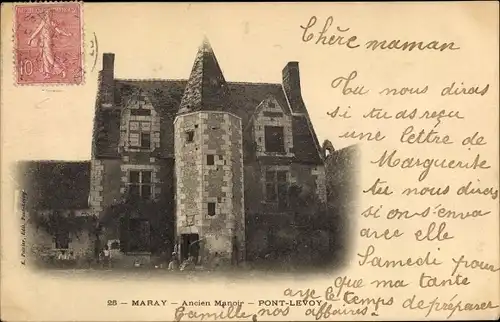 Chère maman
Tu nous diras
si tu as reçu
une lettre de
Marguerite
tu nous diras
si on s'en va
avec elle
Samedi pour
que ma tante
Camille aye le temps de préparer
nos affaires.
28 - MARAY - Ancien Manoir - PONT-LEVOY
10